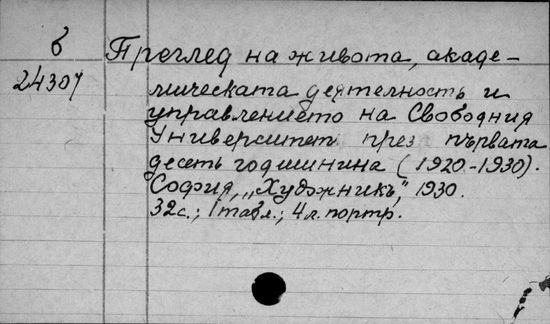 б Преглед на живота, акаде-
24307 мическата деятелность и
управлението на Свободния
Университет през първата
десеть годишнина (1920-1930).
София, „Художникъ", 1930.
32с.; 1 табл.; 4 л. портр.